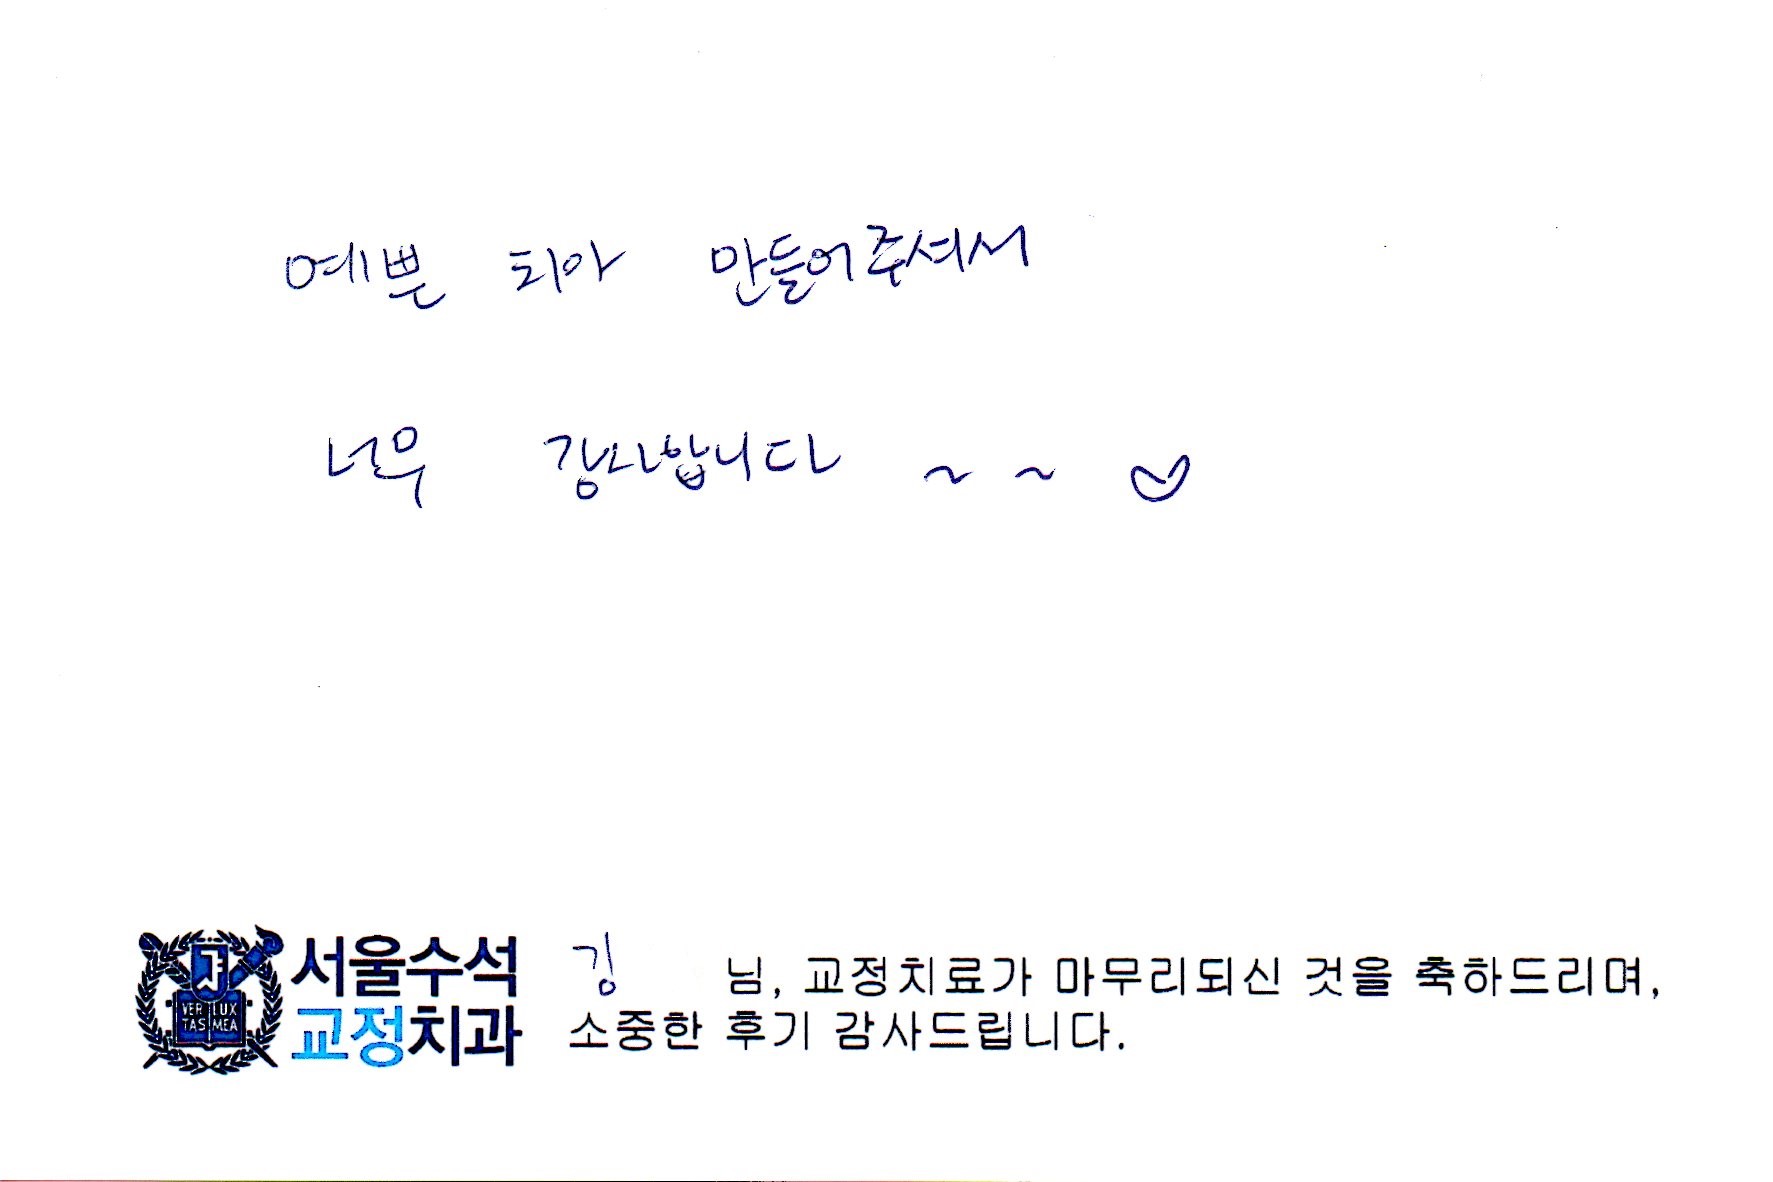 예쁜 치아 만들어주셔서
너무 감사합니다 ~ ~ ♡
서울수석
교정치과
VERI LUX
TAS MEA
김 님, 교정치료가 마무리되신 것을 축하드리며,
소중한 후기 감사드립니다.